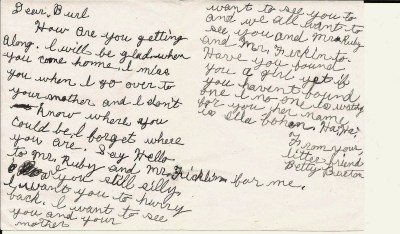 Dear Burl
How are you getting
along. I will be glad when
you come home. I miss
you when I go over to
your mother and I don't
know where you
could be. I forget where
you are. Say Hello
to Mr. Ruby and Mr. for me.
are you still silly.
I want you to hurry
back. I want to see
you and your
mother
want to see you to
and we all want to
see you and Mr. Ruby
and Mr. to
Have you found
you a girl yet if
you havent found
one or no one is
for you her name
is Ella HaHa!
From your
little friend
Betty